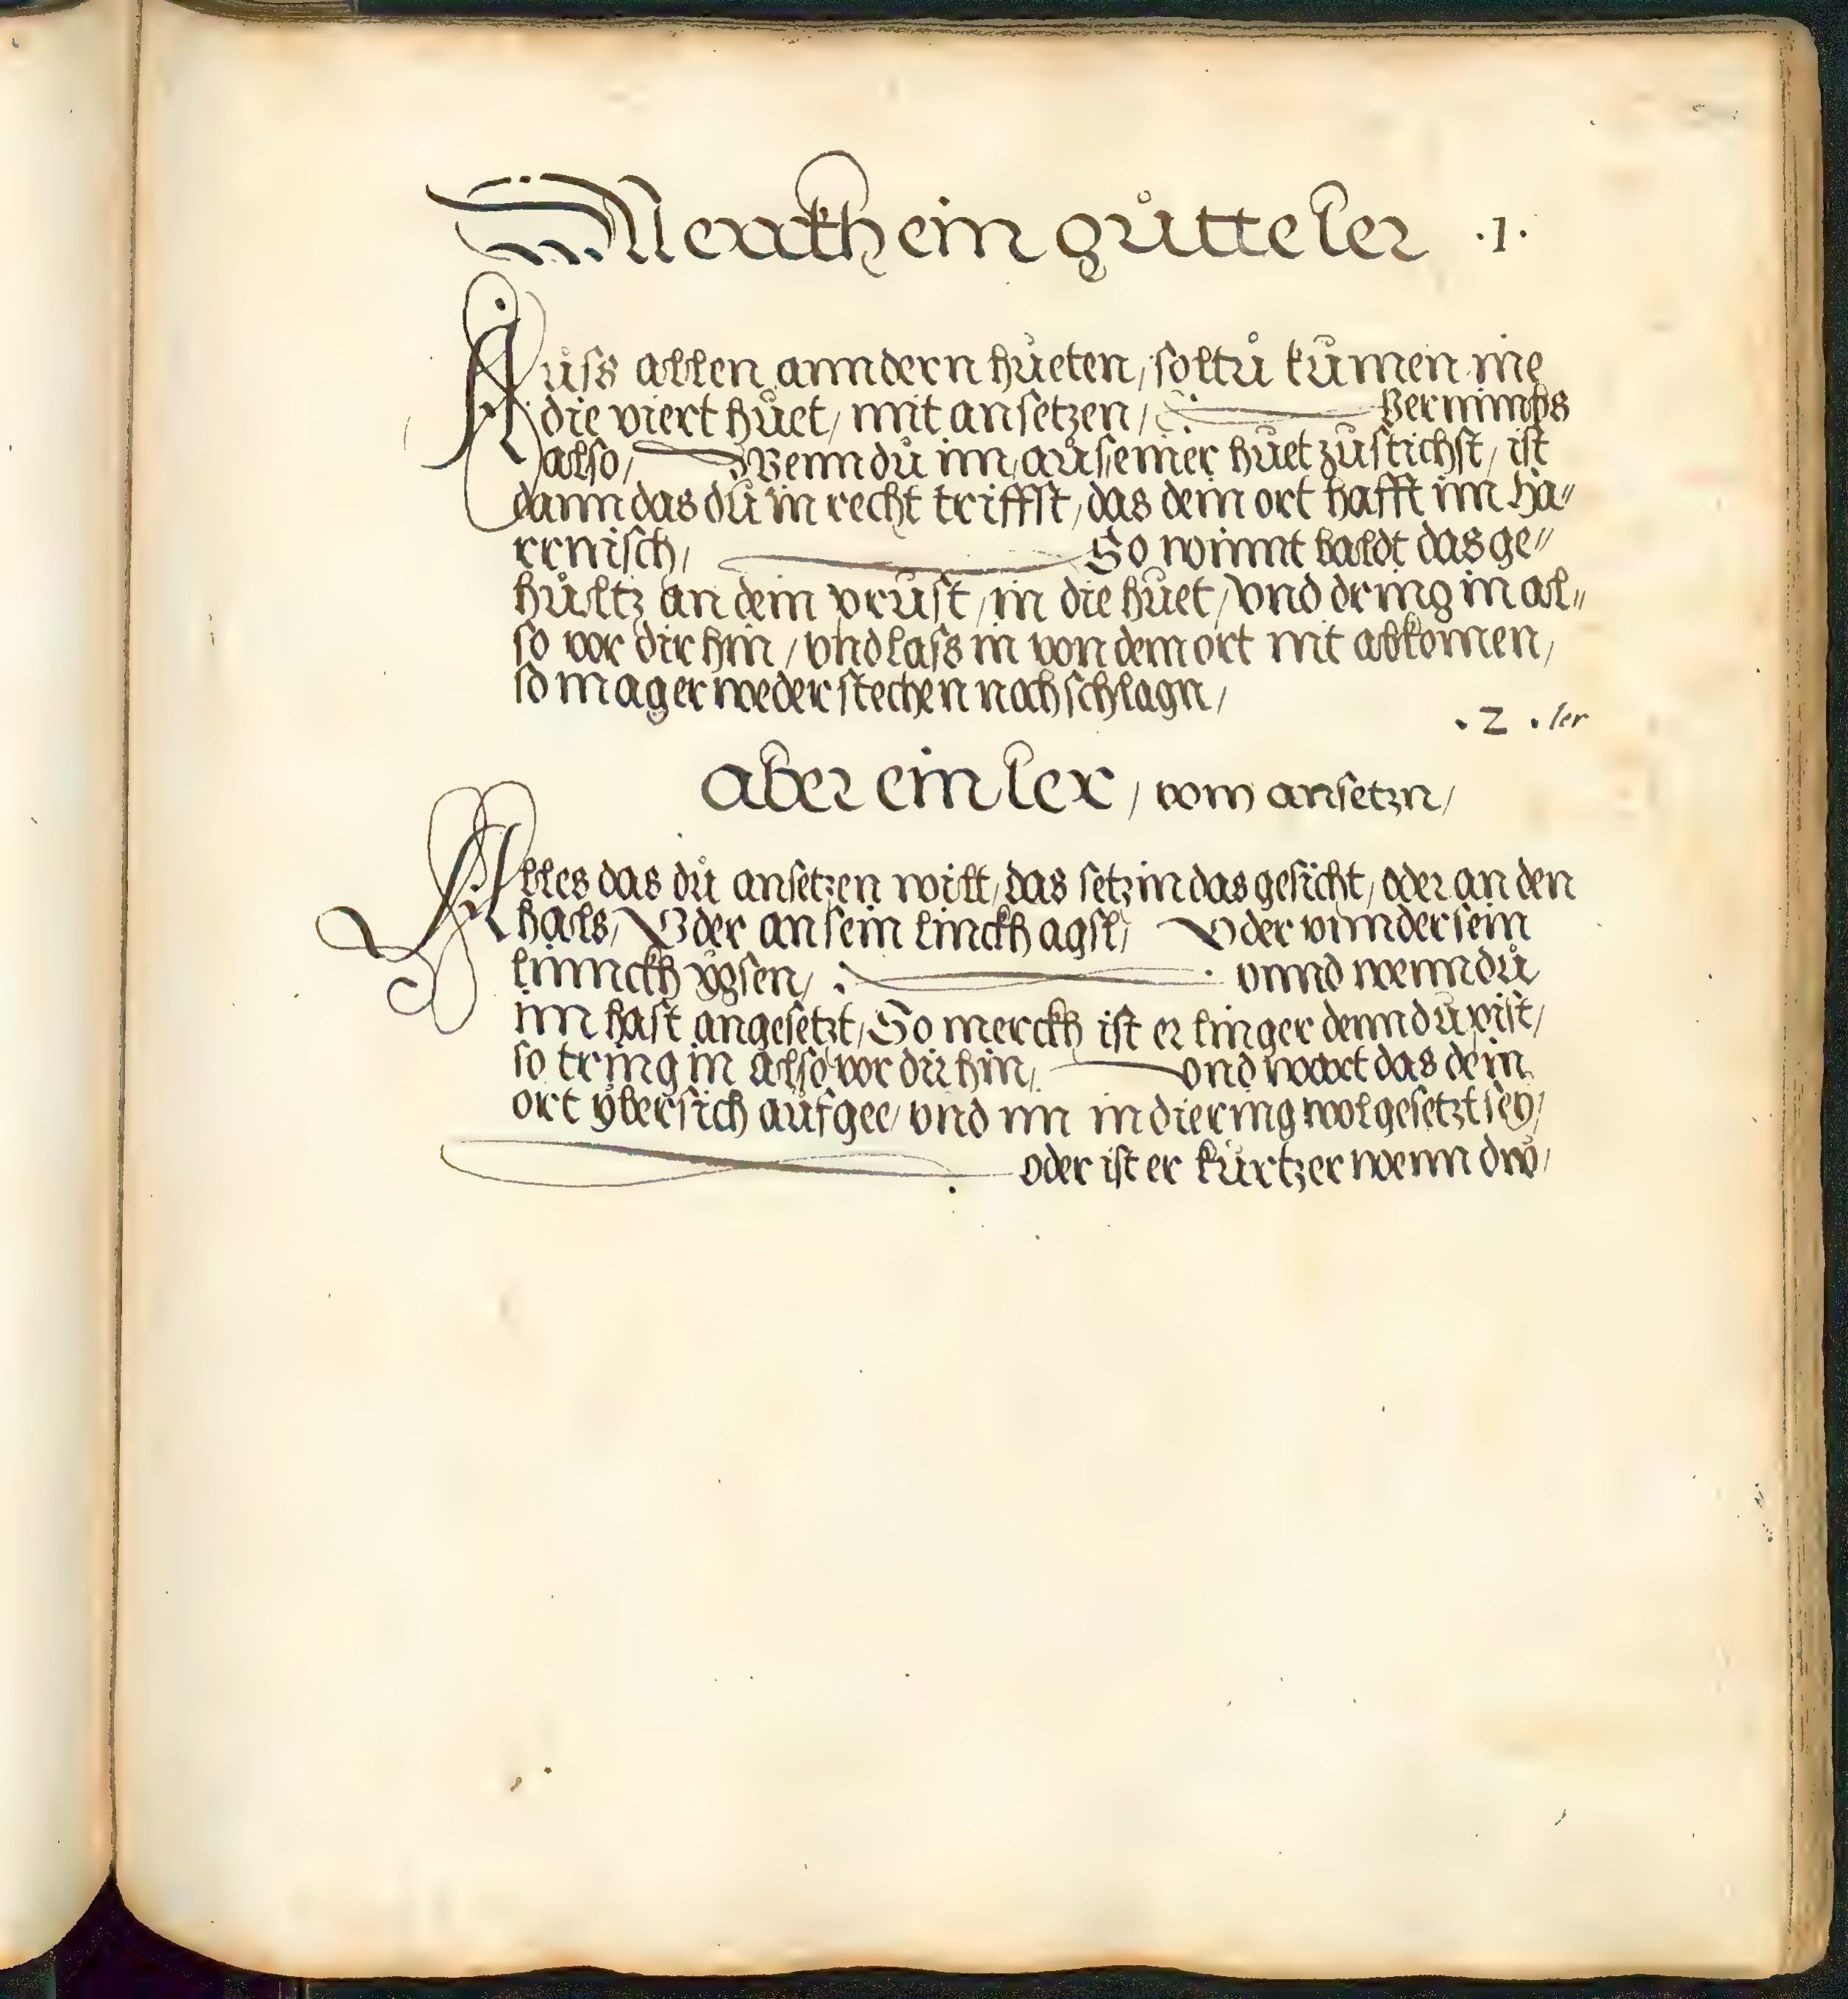 Merckh ein gůtte ler .1.
Aůſs allen anndern hůeten, ſoltů kůmen nie
die viert hůet, mit anſetzen, Vernimbs
alſo, Wenn dů im aůſ einer hůet zůſtichſt, iſt
dann das dů in recht triffſt, das dein ort hafft im ha„
rrniſch, So nimmt baldt das ge„
hůltz an dein průſt, in die hůet, vnd dring in al„
ſo vor dir hin, vnd laſs in von dem ort nit abkomen,
ſo mag er weder ſtechen nach ſchlagn,
. 2 . ler
aber ein ler, vom anſetzn,
Alles das dů anſetzen wilt, das ſetz in das geſicht, oder an den
hals, Oder an ſein linckh agſl, Oder vnnder ſein
linnckh ÿgſen, vnnd wenn dů
im haſt angeſetzt, So merckh iſt er linger denn dů piſt,
ſo tring in alſo vor dir hin, vnd wart das dein
ort ÿberſich aůfgee, vnd im in die ring wol geſetzt ſeÿ,
oder iſt er kůrtzer wenn dw,